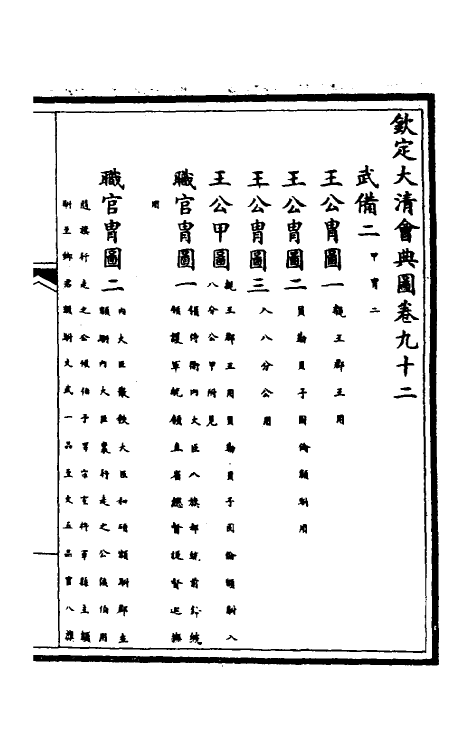 欽定大清會典圖卷九十二
武備二甲冑二
王公冑圖一親王郡王用
王公冑圖二貝勒貝子固倫額駙用
王公冑圖三入八分公用
王公甲圖親王郡王用貝勒貝子固倫額駙入
八分公甲附見
職官冑圖一領侍衛內大臣八旗都統前鋒統
領護軍統領直省總督提督巡撫
用
職官冑圖二內大臣散秩大臣和碩額駙郡主
額駙內大臣裏行走之公侯伯用
行走之公侯伯子男宗室將軍縣主額
駙至鄉君額駙文武一品至文五品